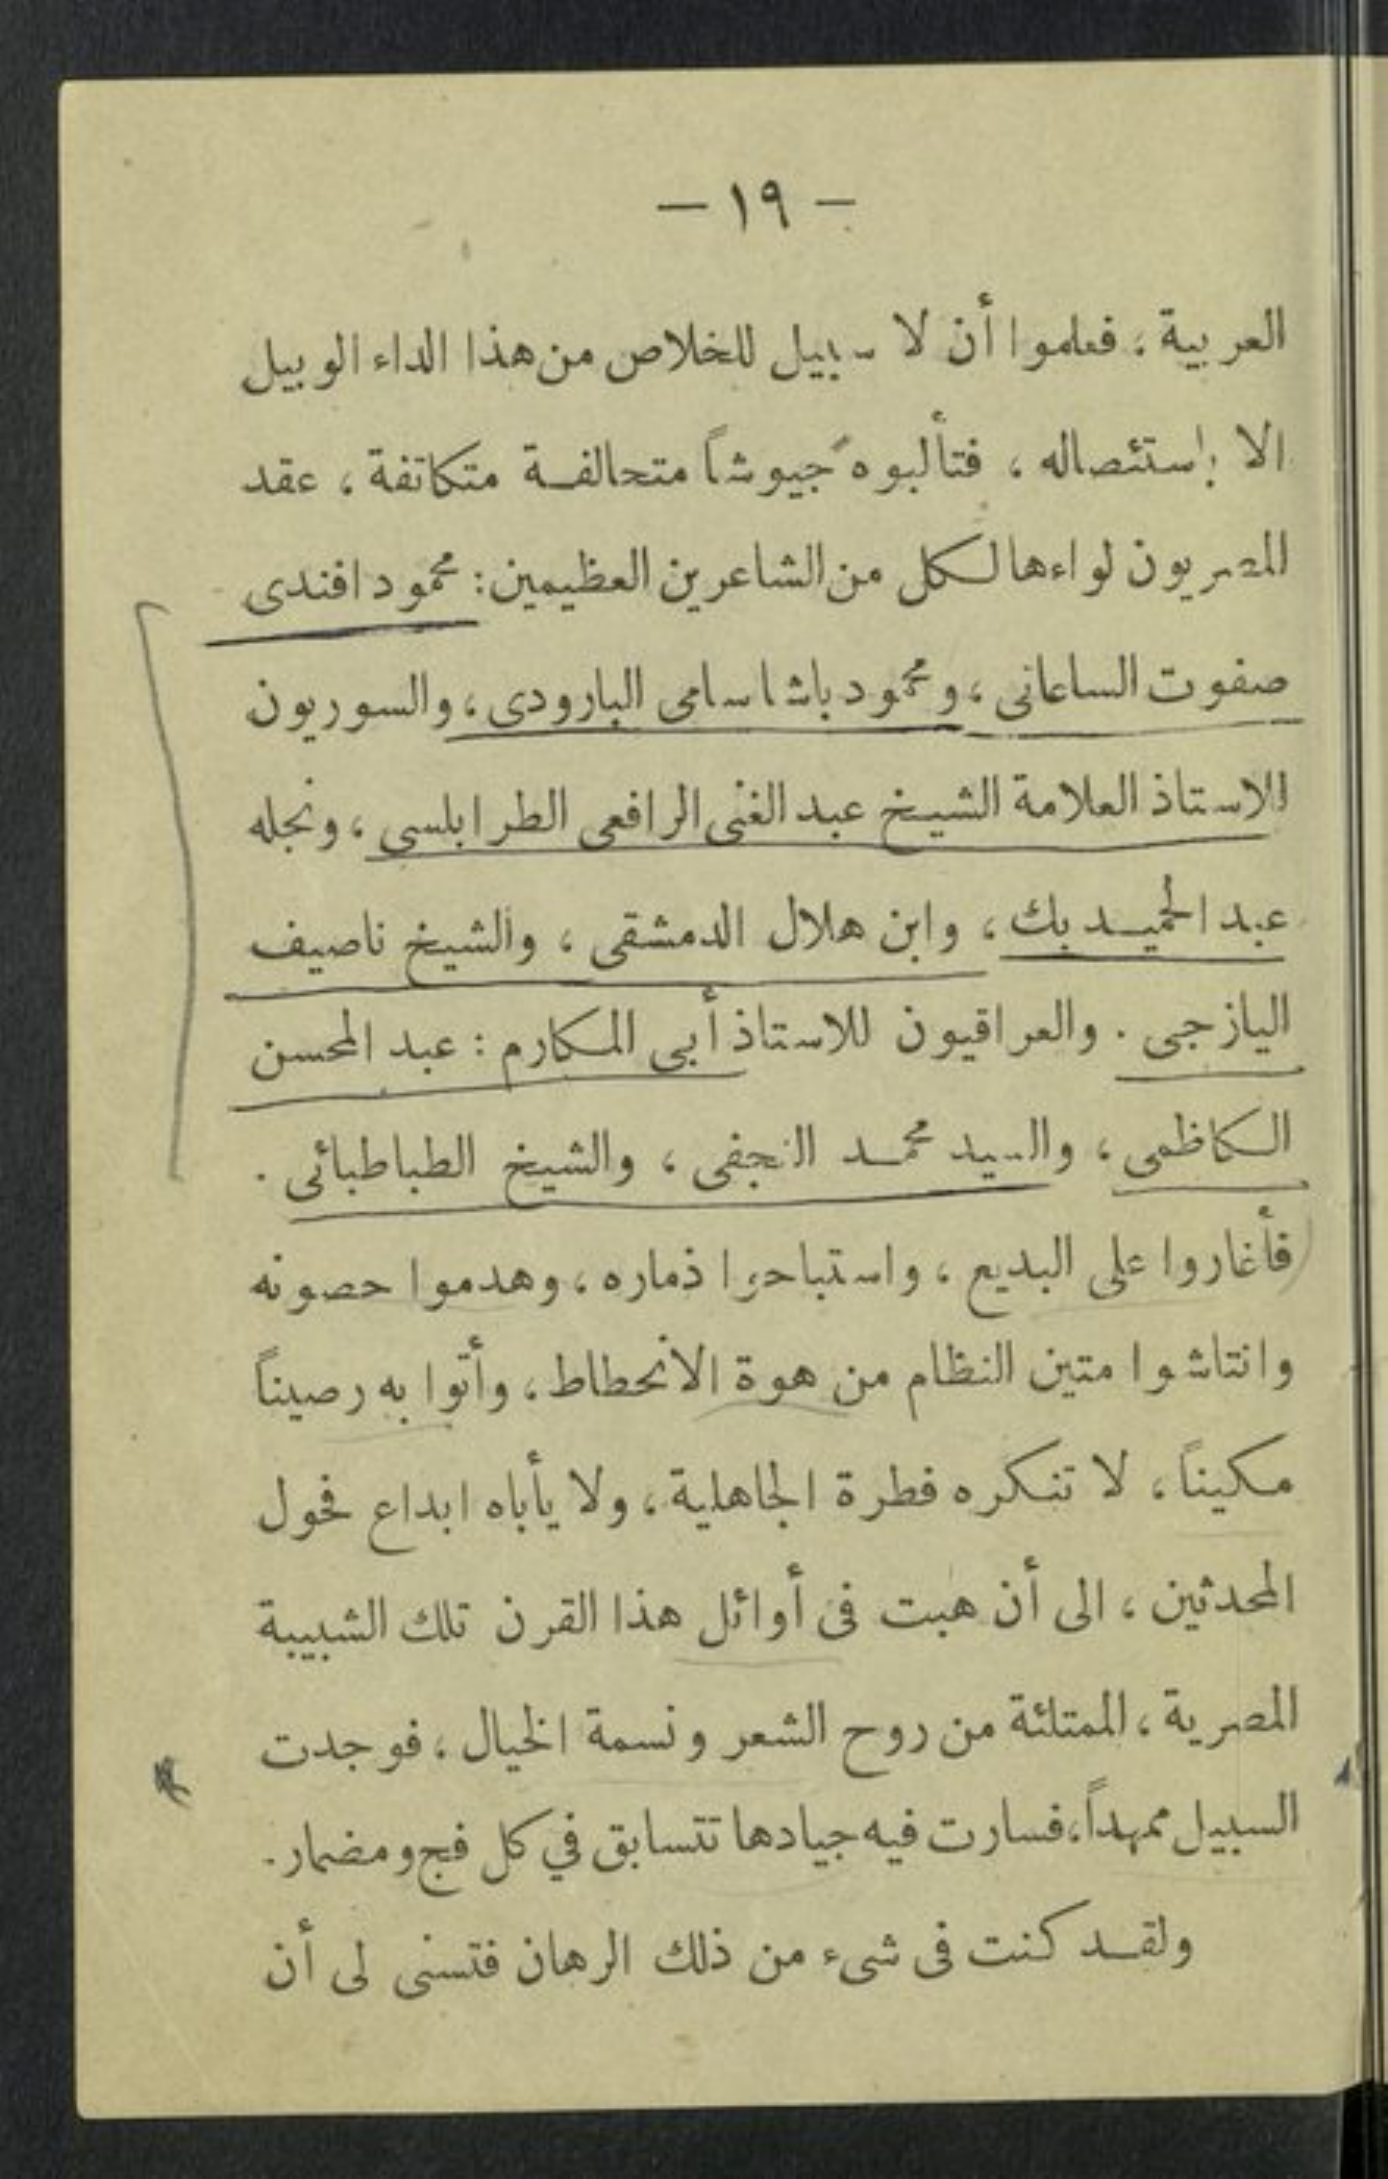 — ١٩ —
العربية ، فعلموا أن لا سبيل للخلاص من هذا الداء الوبيل
الا بإستئصاله ، فتألبوه جيوشاً متحالفة متكاتفة ، عقد
المصريون لواءها لكل من الشاعرين العظيمين : محمود افندى
صفوت الساعاتى ، ومحمود باشا سامى البارودى ، والسوريون
للاستاذ العلامة الشيخ عبد الغنى الرافعى الطرابلسى ، ونجله
عبد الحميد بك ، وابن هلال الدمشقى ، والشيخ ناصيف
اليازجى . والعراقيون للاستاذ أبى المكارم : عبد المحسن
الكاظمى ، والسيد محمد النجفى ، والشيخ الطباطبائى .
فأغاروا على البديع ، واستباحوا ذماره ، وهدموا حصونه
وانتاشوا متين النظام من هوة الانحطاط ، وأتوا به رصيناً
مكيناً ، لا تنكره فطرة الجاهلية ، ولا يأباه ابداع فحول
المحدثين ، الى أن هبت فى أوائل هذا القرن تلك الشبيبة
المصرية ، الممتلئة من روح الشعر ونسمة الخيال ، فوجدت
السبيل ممهداً ، فسارت فيه جيادها تتسابق في كل فج ومضمار .
ولقد كنت فى شىء من ذلك الرهان فتسنى لى أن